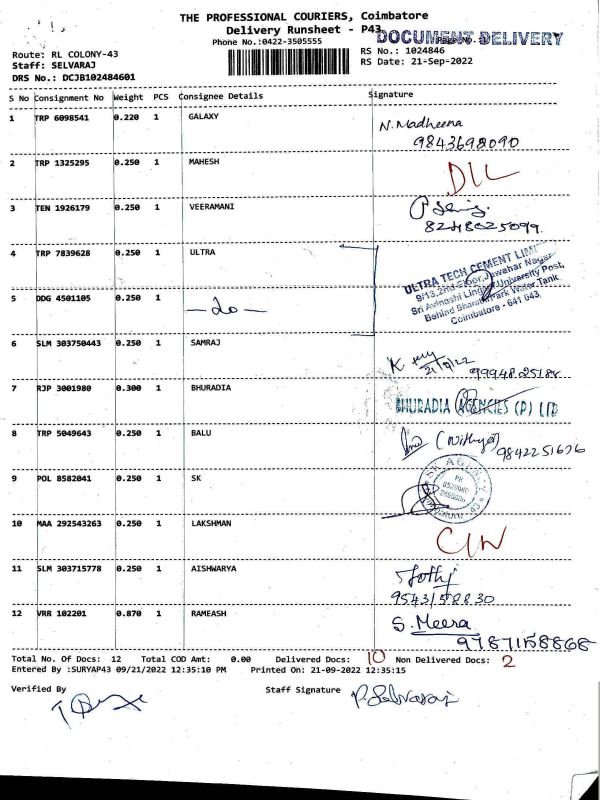 THE PROFESSIONAL COURIERS, Coimbatore
Delivery Runsheet - P43
DOCUMENT DELIVERY
Phone No.:0422-3505555
Route: RL COLONY-43
RS No.: 1024846
Staff: SELVARAJ
RS Date: 21-Sep-2022
DRS No.: DCJB102484601
S No Consignment No Weight PCS Consignee Details Signature
1 TRP 6098541 0.220 1 GALAXY N. Madheena
9843698090
2 TRP 1325295 0.250 1 MAHESH DIL
3 TEN 1926179 0.250 1 VEERAMANI
8248025099
4 TRP 7839628 0.250 1 ULTRA
ULTRA TECH CEMENT LIMI
9/13, 2nd Floor, Jawahar Nagar
Sri Avinashi Lingam University Post,
Behind Bharathi Park Water Tank
Coimbatore - 641 043.
5 DDG 4501105 0.250 1 —do—
6 SLM 303750443 0.250 1 SAMRAJ
21/9/22
7 RJP 3001980 0.300 1 BHURADIA BHURADIA AGENCIES (P) LTD
8 TRP 5049643 0.250 1 BALU (Nithya)
9842251626
9 POL 8582041 0.250 1 SK SK AGEN
10 MAA 292543263 0.250 1 LAKSHMAN CIN
11 SLM 303715778 0.250 1 AISHWARYA Jothi
9543158830
12 VRR 102201 0.870 1 RAMEASH S. Meera
9787158868
Total No. Of Docs: 12 Total COD Amt: 0.00 Delivered Docs: 10 Non Delivered Docs: 2
Entered By :SURYAP43 09/21/2022 12:35:10 PM Printed On: 21-09-2022 12:35:15
Verified By Staff Signature P. Selvaraj